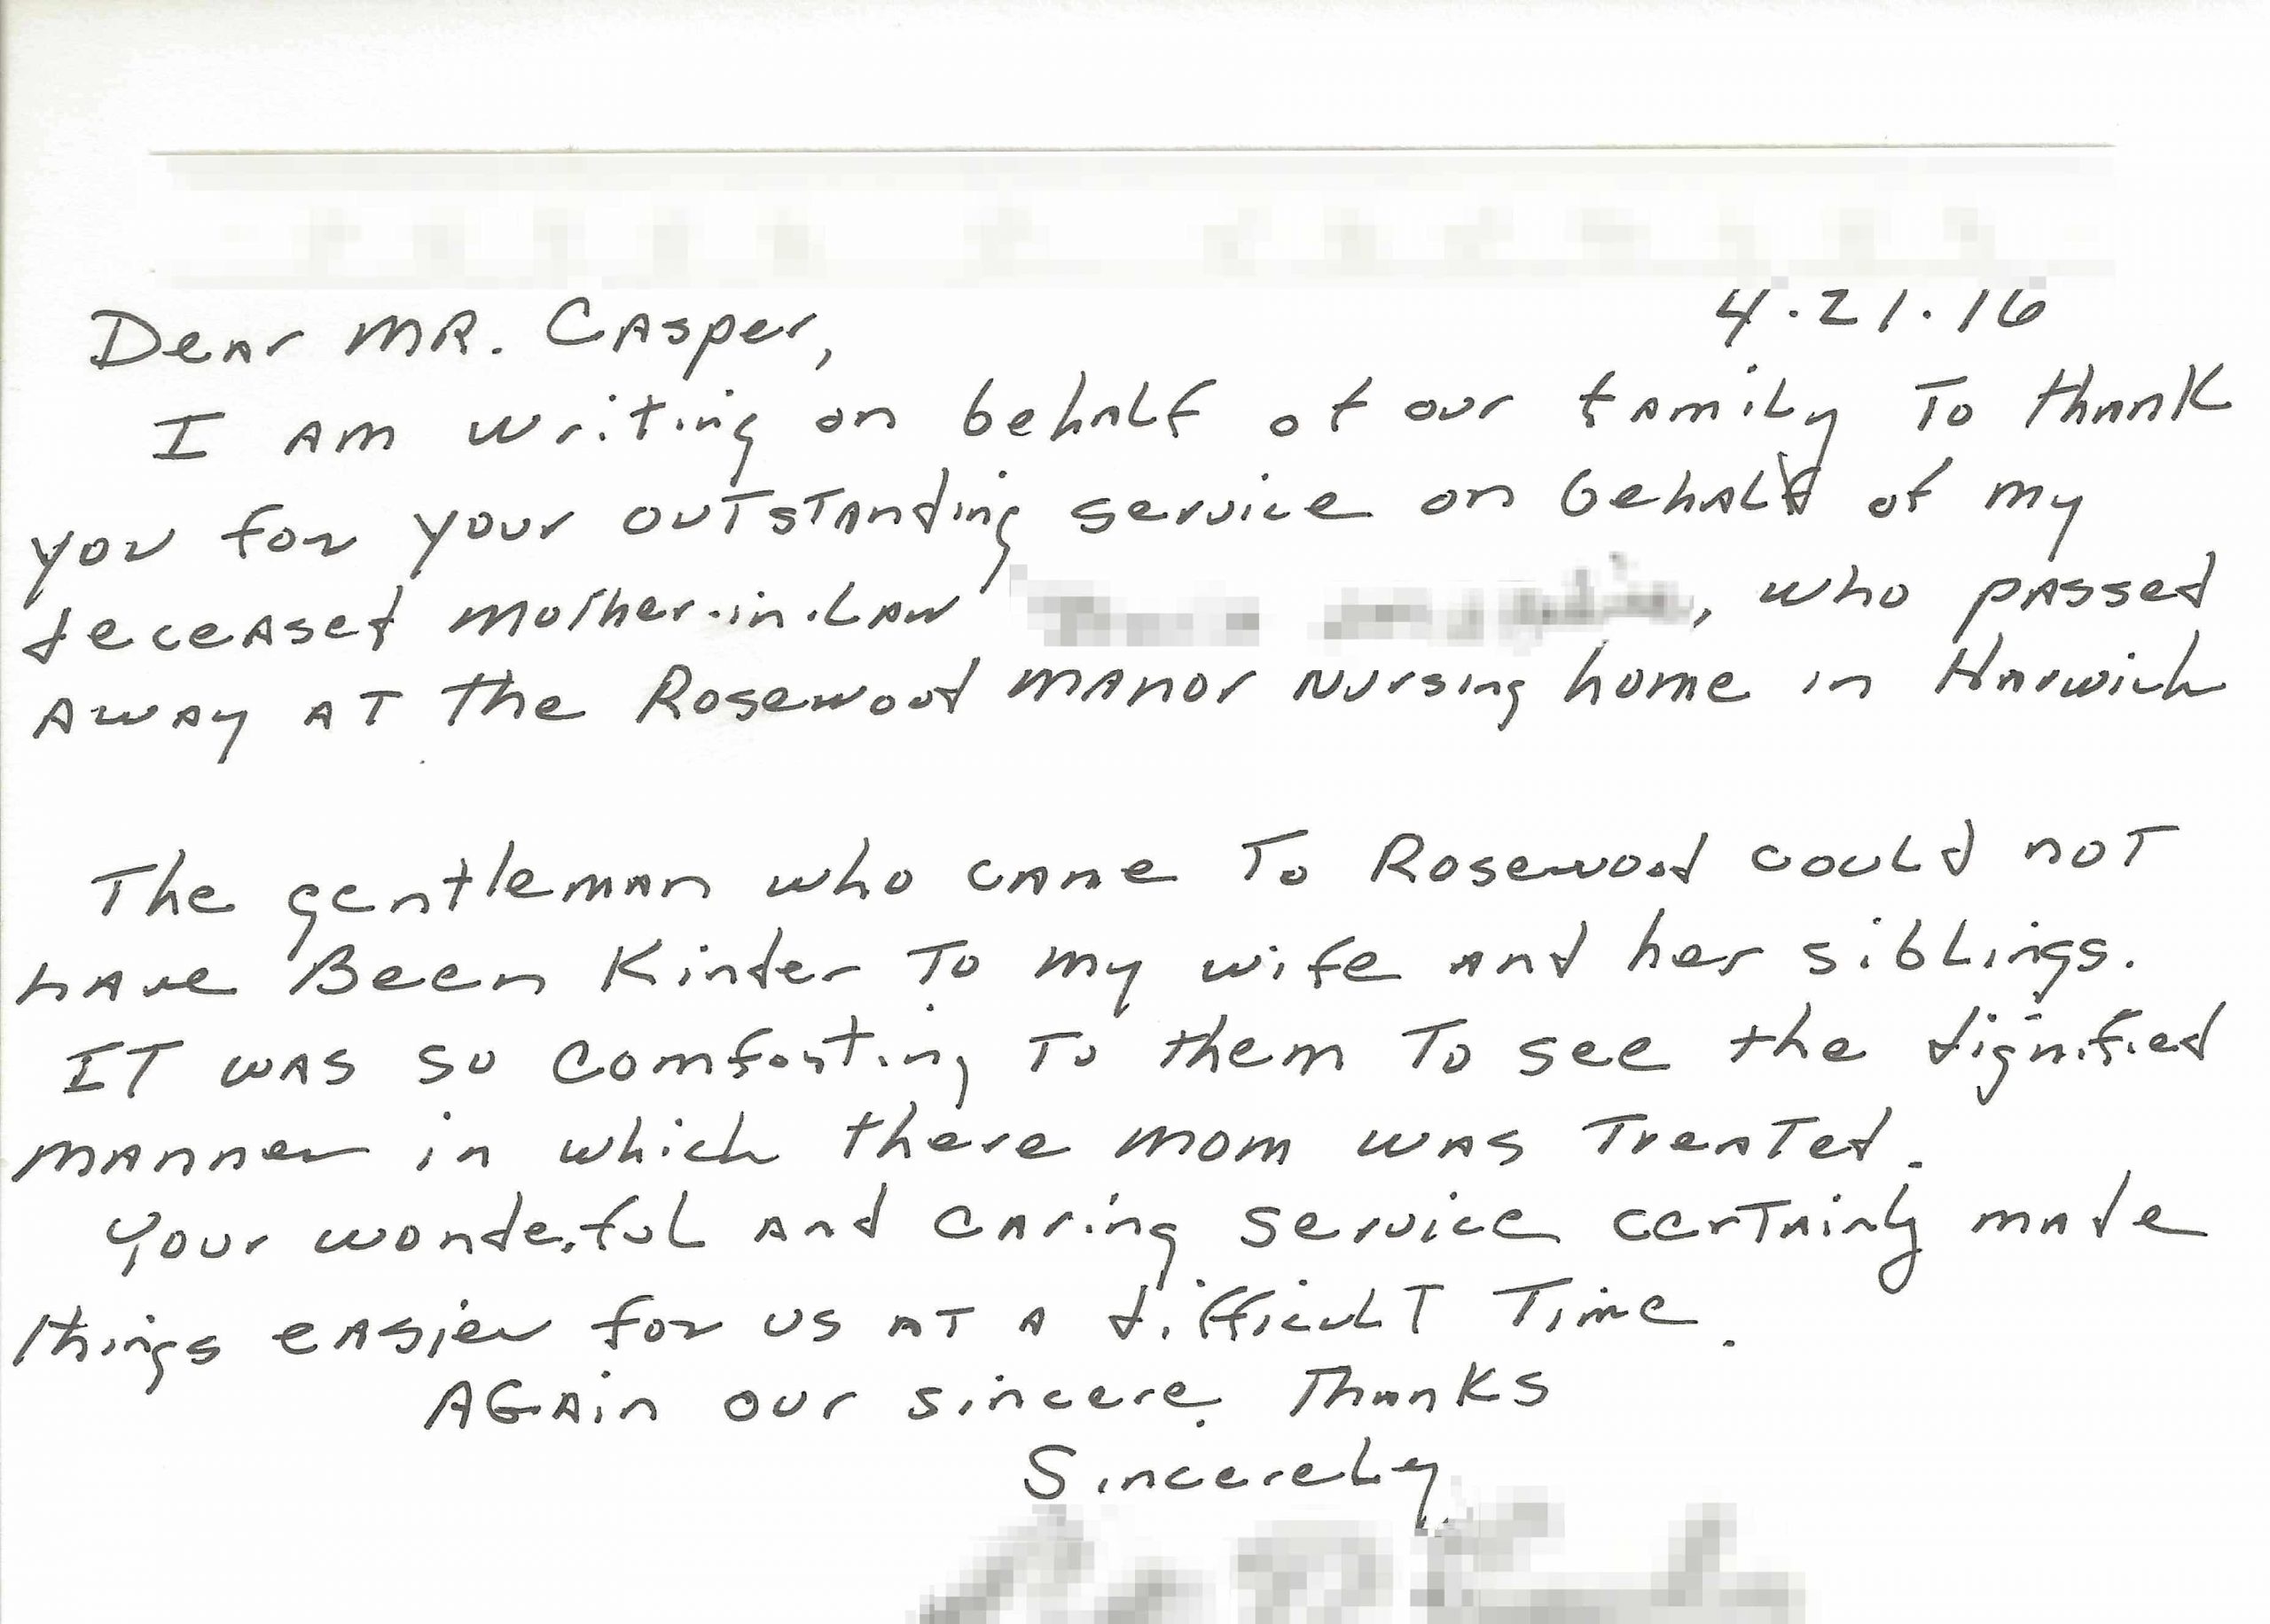 4.21.16
Dear MR. Casper,
I am writing on behalf of our family to thank
you for your outstanding service on behalf of my
deceased mother-in-law , who passed
away at the Rosewood manor nursing home in Harwich
The gentleman who came to Rosewood could not
have Been Kinder to my wife and her siblings.
IT was so comforting to them to see the dignified
manner in which there mom was treated.
Your wonderful and caring service certainly made
things easier for us at a difficult time.
Again our sincere thanks
Sincerely